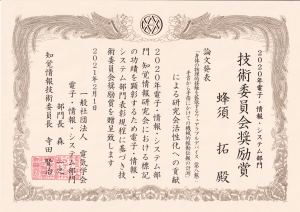 2020年電子・情報・システム部門
技術委員会奨励賞
蜂須 拓 殿
論文発表
による研究会活性化への貢献
2020年電子・情報・システム部
門 知覚情報研究会における標記
の功績を顕彰するため電子・情報・
システム部門表彰規程に基づき技
術委員会奨励賞を贈呈致します
2021年2月1日
一般社団法人 電気学会
電子・情報・システム部門
部門長 森 一之
知覚情報技術委員長 寺田 賢治